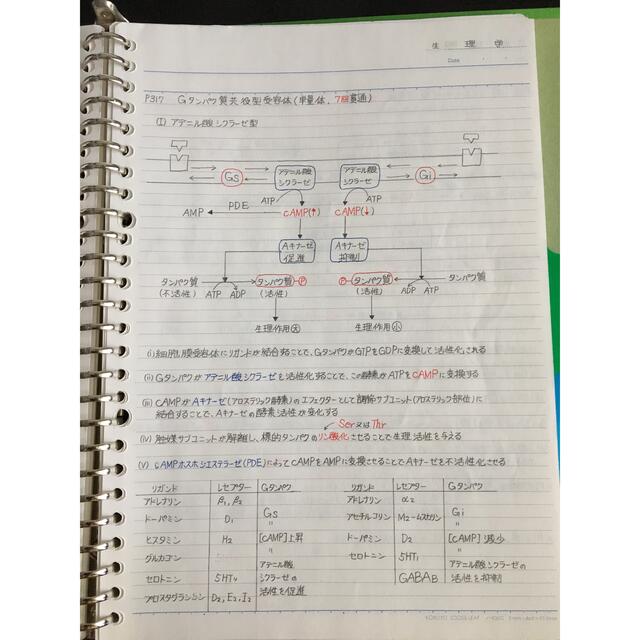 生 理 学
Date
P317 Gタンパク質共役型受容体(単量体、7回貫通)
(I) アデニル酸シクラーゼ型
Gs
アデニル酸
シクラーゼ
アデニル酸
シクラーゼ
Gi
ATP
ATP
AMP
PDE
CAMP(↑)
CAMP(↓)
Aキナーゼ
促進
Aキナーゼ
抑制
タンパク質
(不活性)
ATP
ADP
タンパク質
P
(活性)
P
タンパク質
(活性)
ADP
ATP
タンパク質
生理作用大
生理作用小
(i) 細胞膜受容体にリガンドが結合することで、GタンパクがGTPをGDPに変換して活性化される
(ii) Gタンパクがアデニル酸シクラーゼを活性化することで、この酵素がATPをCAMPに変換する
(iii) CAMPがAキナーゼ(アロステリック酵素)のエフェクターとして調節サブユニット(アロステリック部位)に
結合することで、Aキナーゼの酵素活性が変化する
Ser又はThr
(iv) 触媒サブユニットが解離し、標的タンパクのリン酸化させることで生理活性を与える
(V) CAMPホスホジエステラーゼ(PDE)によってCAMPをAMPに変換させることでAキナーゼを不活性化させる
リガンド レセプター Gタンパク
アドレナリン β1, β2
ドーパミン D1
ヒスタミン H2
グルカゴン
セロトニン 5HT4
プロスタグランジン D2, E2, I2
Gs
〃
[CAMP]上昇
〃
アデニル酸
シクラーゼの
活性を促進
リガンド レセプター Gタンパク
アドレナリン α2
アセチルコリン M2-ムスカリン
ドーパミン D2
セロトニン 5HT1
GABAB
Gi
〃
[CAMP]減少
〃
アデニル酸シクラーゼの
活性を抑制